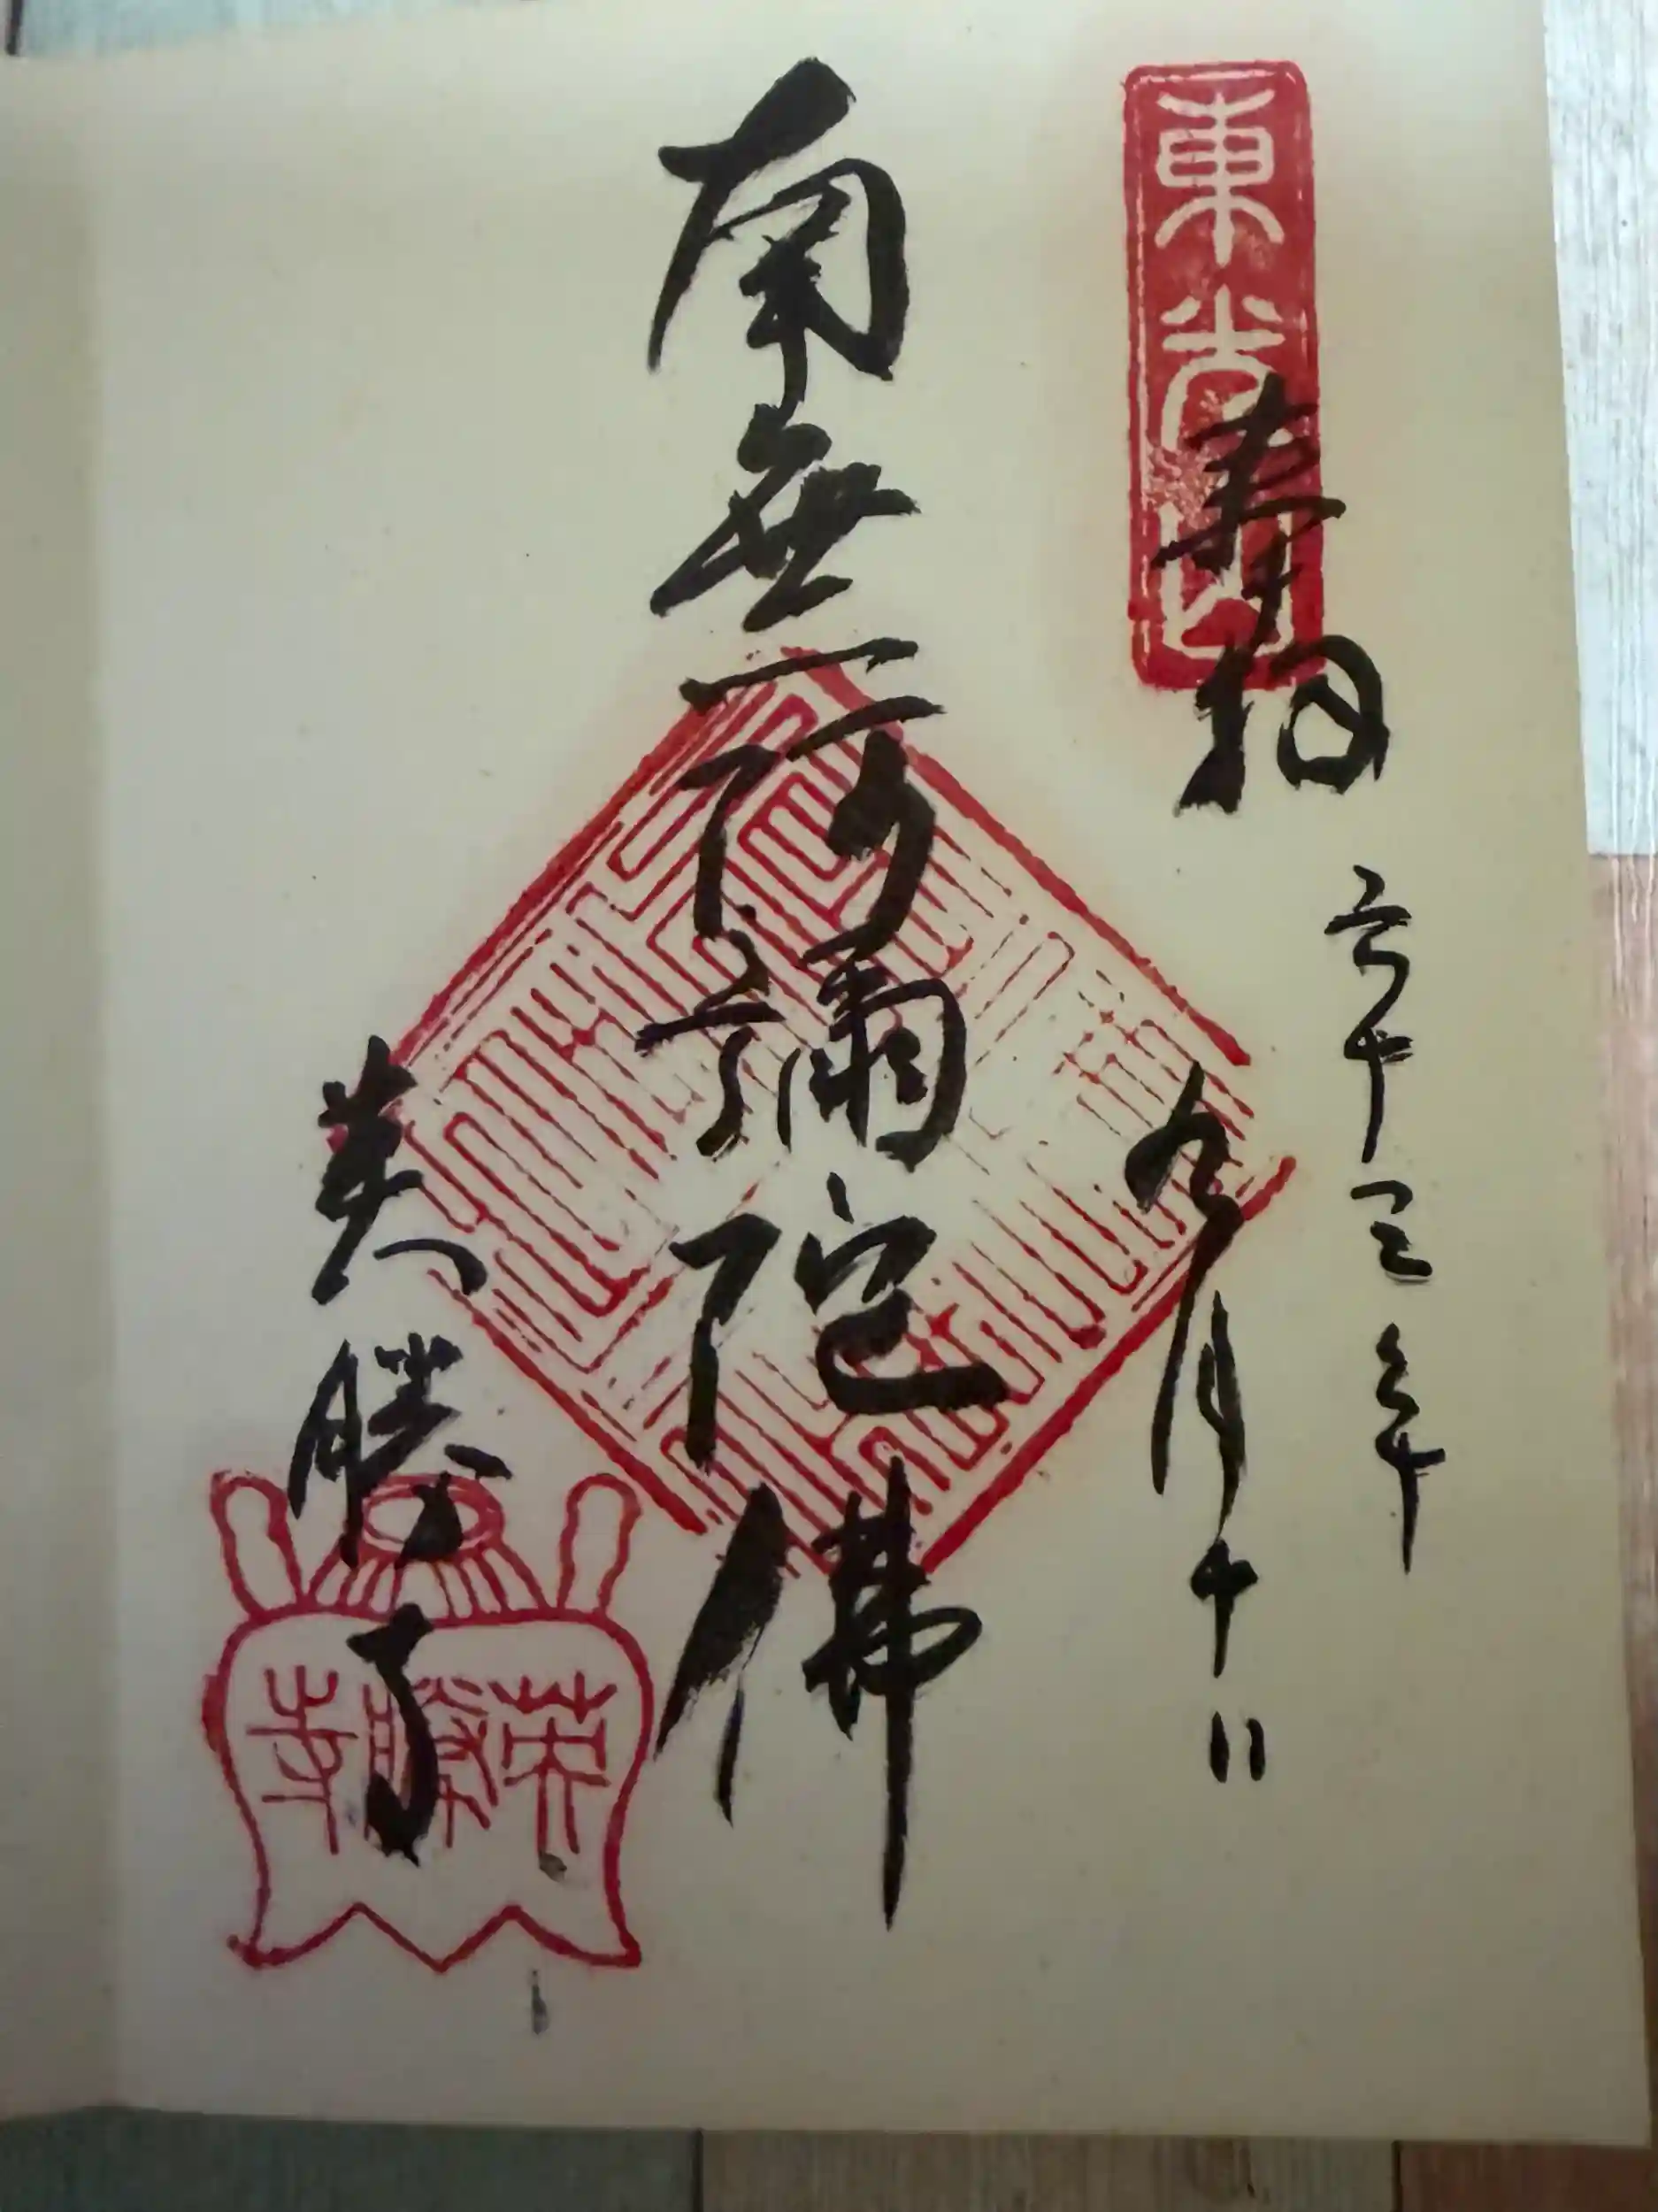 東光山
奉拝
六十三年
九月十日
南無阿彌陀佛
英勝寺
英勝寺